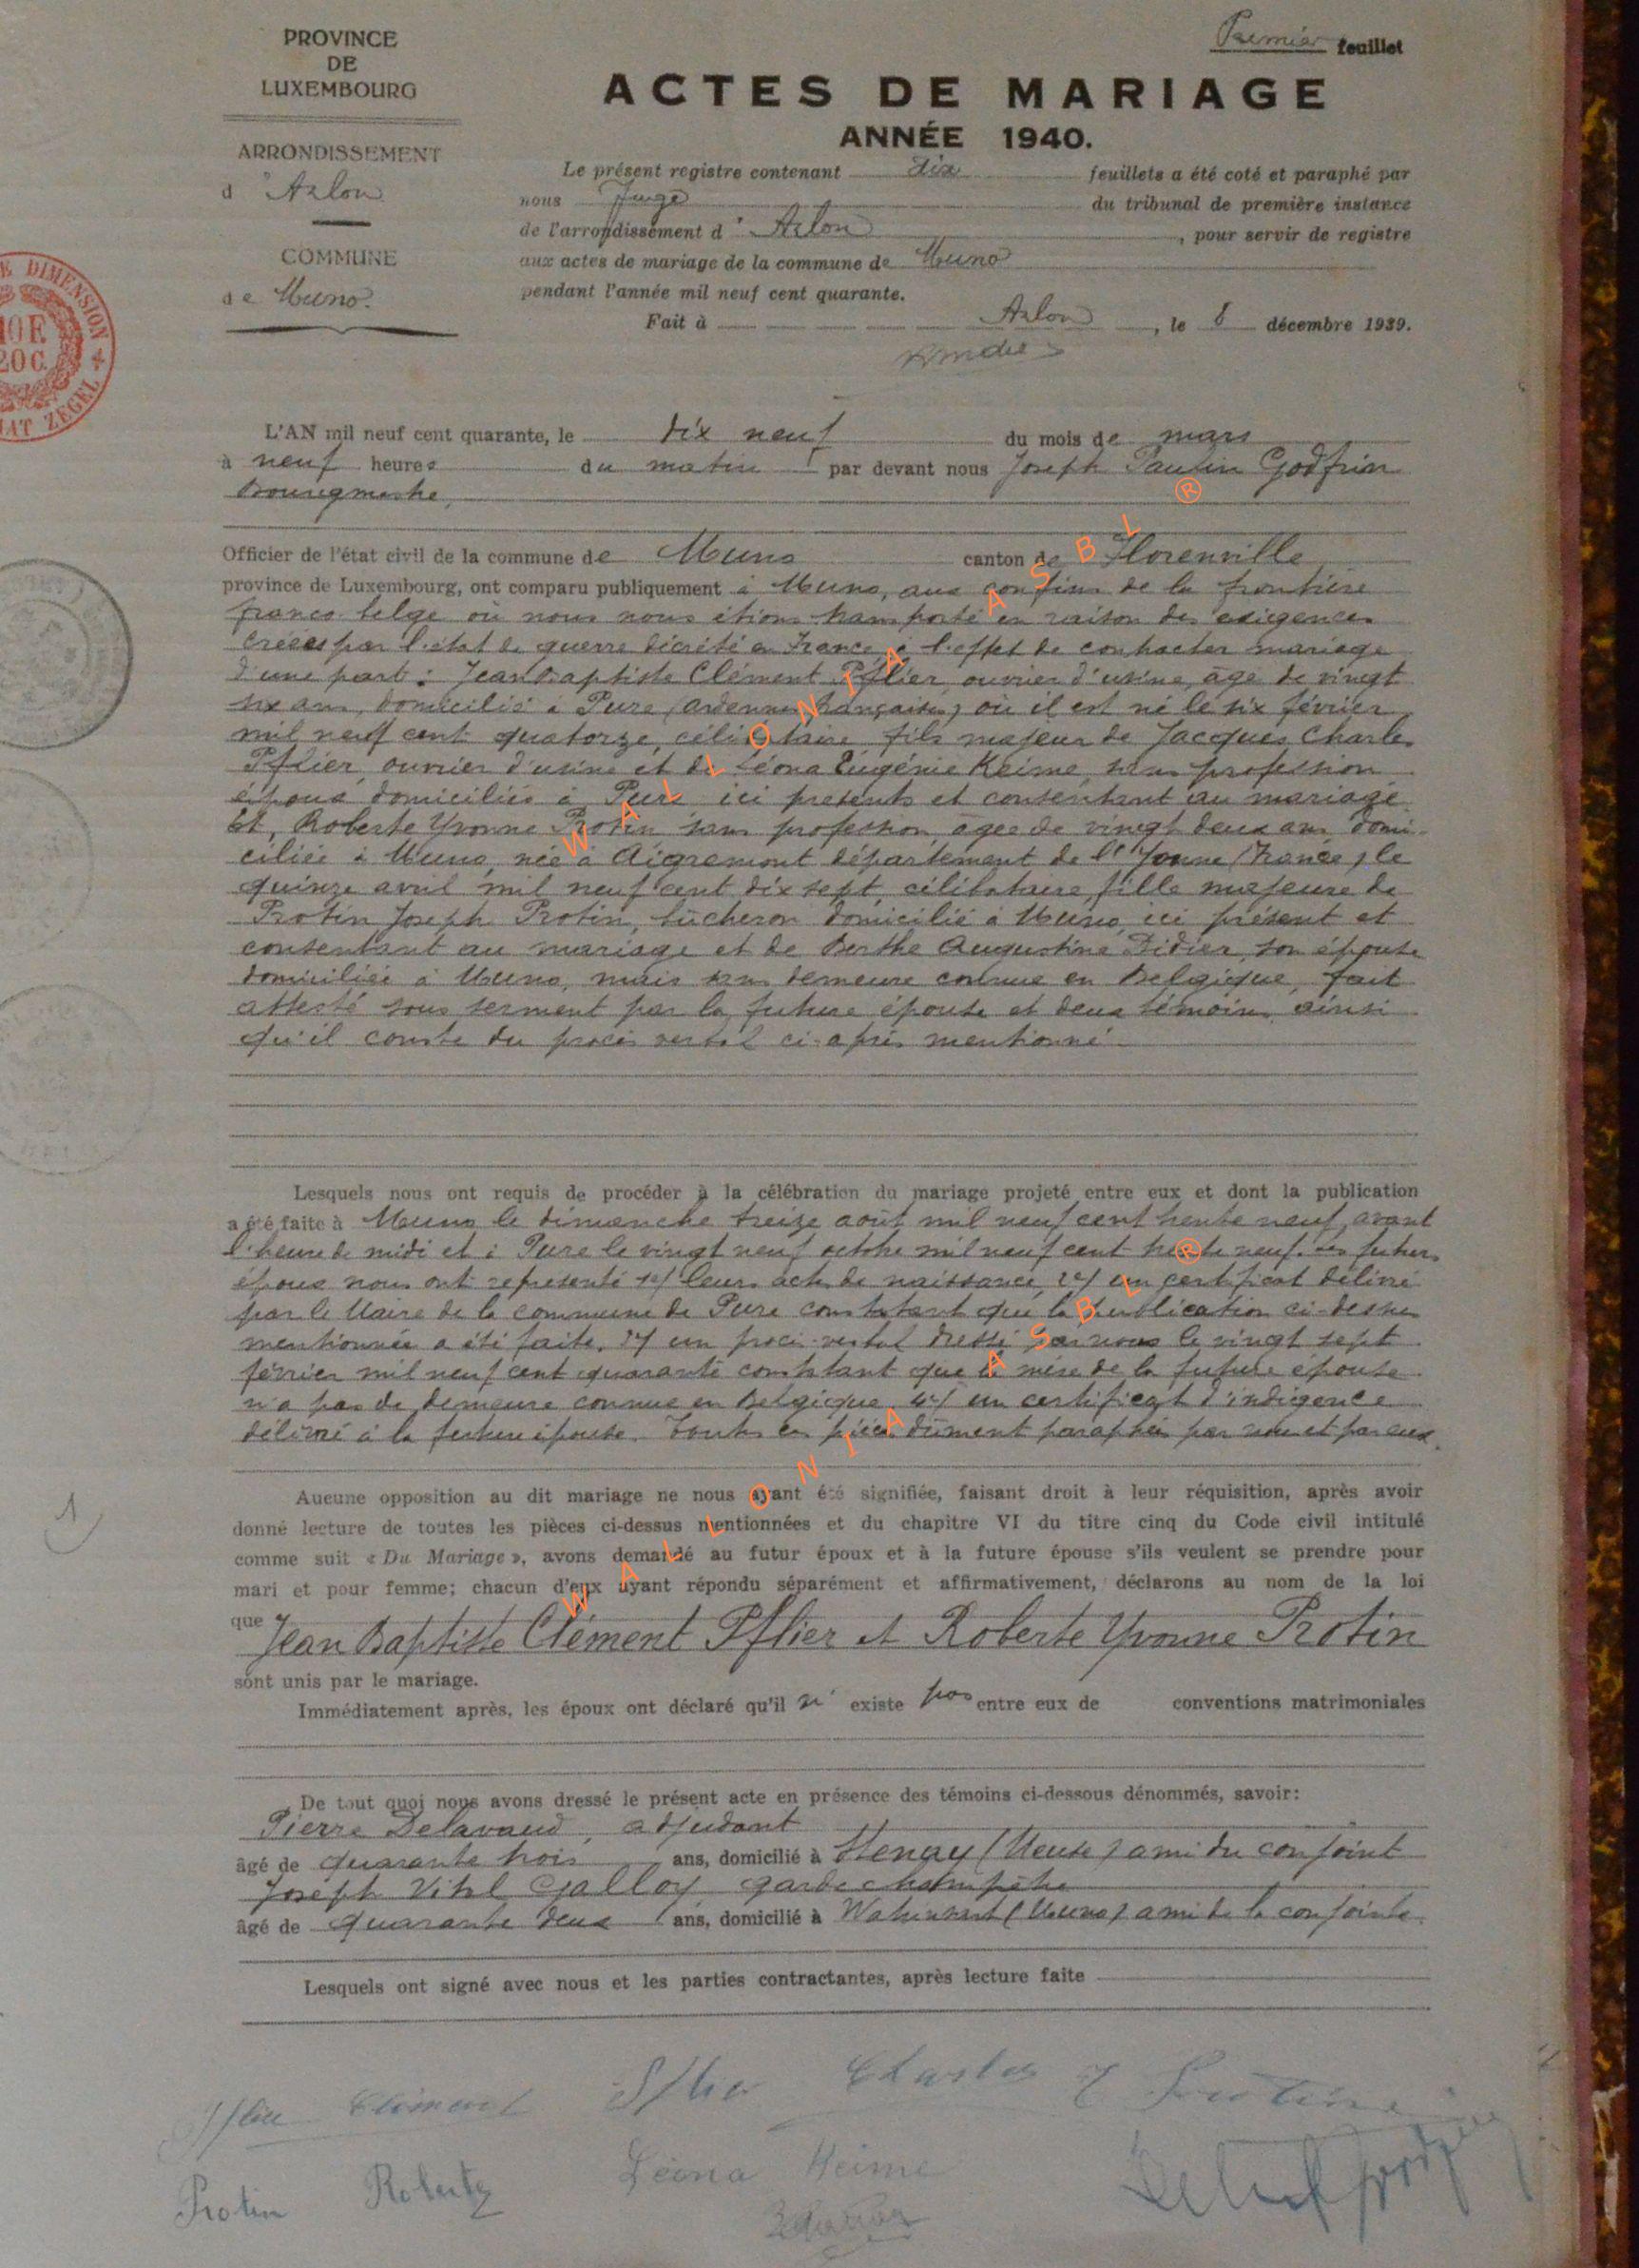 Premier feuillet
PROVINCE
DE
LUXEMBOURG
ACTES DE MARIAGE
ANNÉE 1940.
ARRONDISSEMENT
d'Arlon
COMMUNE
de Muno.
Le présent registre contenant dix feuillets a été coté et paraphé par
nous Juge du tribunal de première instance
de l'arrondissement d'Arlon, pour servir de registre
aux actes de mariage de la commune de Muno
pendant l'année mil neuf cent quarante.
Fait à Arlon, le 8 décembre 1939.
E DIMENSION
10 F.
20 C.
ZEGEL
L'AN mil neuf cent quarante, le dix neuf du mois de mars
à neuf heures du matin par devant nous Joseph Paulin Godfrin
Bourgmestre,
Officier de l'état civil de la commune de Muno canton de Florenville
province de Luxembourg, ont comparu publiquement à Muno, aux confins de la frontière
franco belge où nous nous étions transporté en raison des exigences
créées par l'état de guerre décrété en France, à l'effet de contracter mariage
d'une part : Jean Baptiste Clément Pflier, ouvrier d'usine, âgé de vingt
six ans, domicilié à Pure (Ardennes françaises) où il est né le six février
mil neuf cent quatorze, célibataire, fils majeur de Jacques Charles
Pflier, ouvrier d'usine et de Léona Eugénie Keime, sans profession
époux domiciliés à Pure ici présents et consentant au mariage.
Et, Roberte Yvonne Protin sans profession, âgée de vingt deux ans domi-
ciliée à Muno, née à Aigremont département de l'Yonne (France) le
quinze avril mil neuf cent dix sept, célibataire, fille majeure de
Protin Joseph Protin, bûcheron domicilié à Muno, ici présent et
consentant au mariage et de Berthe Augustine Didier, son épouse
domiciliée à Muno, mais sans demeure connue en Belgique, fait
attesté sous serment par la future épouse et deux témoins ainsi
qu'il conste du procès verbal ci-après mentionné.
Lesquels nous ont requis de procéder à la célébration du mariage projeté entre eux et dont la publication
a été faite à Muno le dimanche treize août mil neuf cent trente neuf, avant
l'heure de midi et à Pure le vingt neuf octobre mil neuf cent trente neuf. Les futurs
époux nous ont représenté 1°/ leurs actes de naissance, 2°/ un certificat délivré
par le Maire de la commune de Pure constatant que la publication ci-dessus
mentionnée a été faite, 3°/ un procès-verbal dressé par nous le vingt sept
février mil neuf cent quarante constatant que la mère de la future épouse
n'a pas de demeure connue en Belgique, 4°/ un certificat d'indigence
délivré à la future épouse. Toutes ces pièces dûment paraphées par nous et par eux.
1
Aucune opposition au dit mariage ne nous ayant été signifiée, faisant droit à leur réquisition, après avoir
donné lecture de toutes les pièces ci-dessus mentionnées et du chapitre VI du titre cinq du Code civil intitulé
comme suit « Du Mariage », avons demandé au futur époux et à la future épouse s'ils veulent se prendre pour
mari et pour femme; chacun d'eux ayant répondu séparément et affirmativement, déclarons au nom de la loi
que Jean Baptiste Clément Pflier et Roberte Yvonne Protin
sont unis par le mariage.
Immédiatement après, les époux ont déclaré qu'il n'existe pas entre eux de conventions matrimoniales
De tout quoi nous avons dressé le présent acte en présence des témoins ci-dessous dénommés, savoir:
Pierre Delavaud, adjudant
âgé de quarante trois ans, domicilié à Stenay (Meuse) ami du conjoint
Joseph Vital Galloy garde champêtre
âgé de quarante deux ans, domicilié à (Muno) ami de la conjointe.
Lesquels ont signé avec nous et les parties contractantes, après lecture faite
Pflier Clément Pflier Charles J Protin
Protin Roberte Léona Keime
WALLONIA ASBL ®
WALLONIA ASBL ®